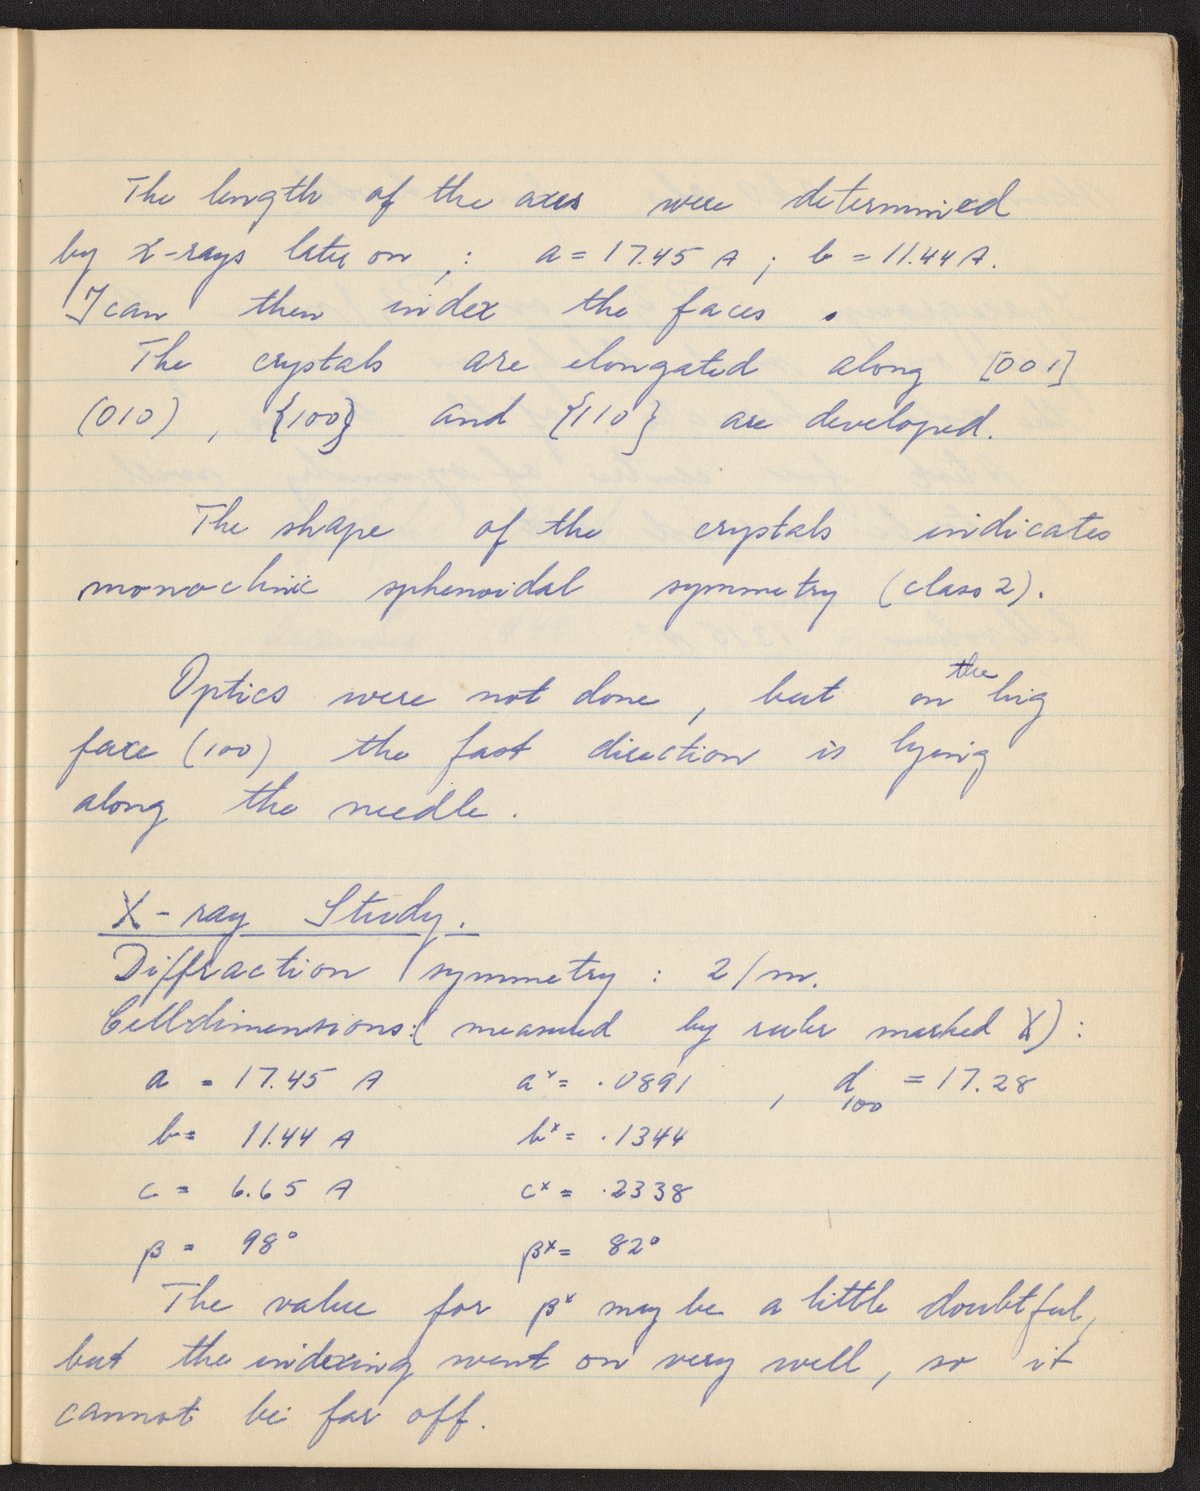 The length of the axes were determined
by X-rays later on ; : a = 17.45 A ; b = 11.44 A.
I can then index the faces .
The crystals are elongated along [001]
(010) , {100} and {110} are developed.
The shape of the crystals indicates
monoclinic sphenoidal symmetry (class 2).
Optics were not done , but on the big
face (100) the fast direction is lying
along the needle .
X-ray Study.
Diffraction symmetry : 2/m.
Celldimensions: ( measured by ruler marked X) :
a = 17.45 A aˣ = .0891 , d₁₀₀ = 17.28
b = 11.44 A bˣ = .1344
c = 6.65 A cˣ = .2338
β = 98° βˣ = 82°
The value for βˣ may be a little doubtful,
but the indexing went on very well, so it
cannot be far off.